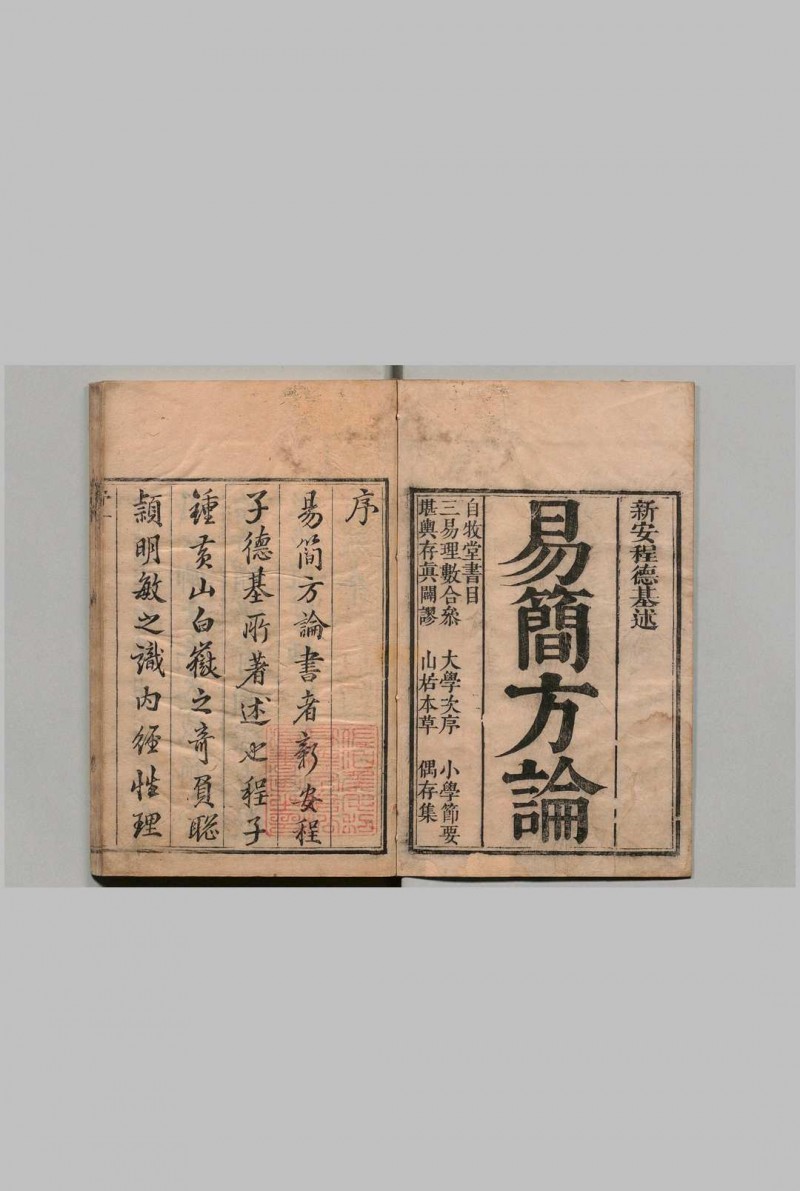 新安程德基述
易簡方論
自牧堂書目
三易理數合叅 大學次序 小學節要
堪輿存真闢謬 山居本草 偶存集
序
易簡方論書者新安程
子德基所著述也程子
鍾黃山白嶽之奇負聰
穎明敏之識內經性理